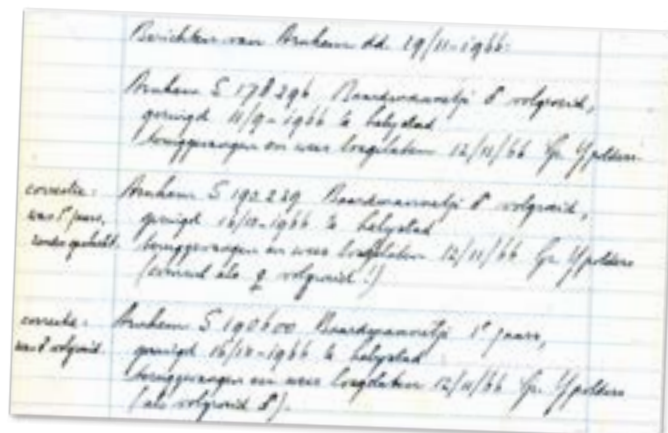 Berichten van Arnhem dd. 29/11-1966:
Arnhem S 178296 Baardmannetje ♂ volgroeid,
geringd 11/9-1966 te Lelystad
teruggevangen en weer losgelaten 12/11/66 Gr. IJpolders
correctie: Arnhem S 190239 Baardmannetje ♂ volgroeid,
was 1e jaars, geringd 16/10-1966 te Lelystad
zonder geslacht. teruggevangen en weer losgelaten 12/11/66 Gr. IJpolders
(als ♀ volgroeid!)
correctie: Arnhem S 190600 Baardmannetje 1e jaars,
was ♂ volgroeid. geringd 16/10-1966 te Lelystad
teruggevangen en weer losgelaten 12/11/66 Gr. IJpolders
(als volgroeid ♂).